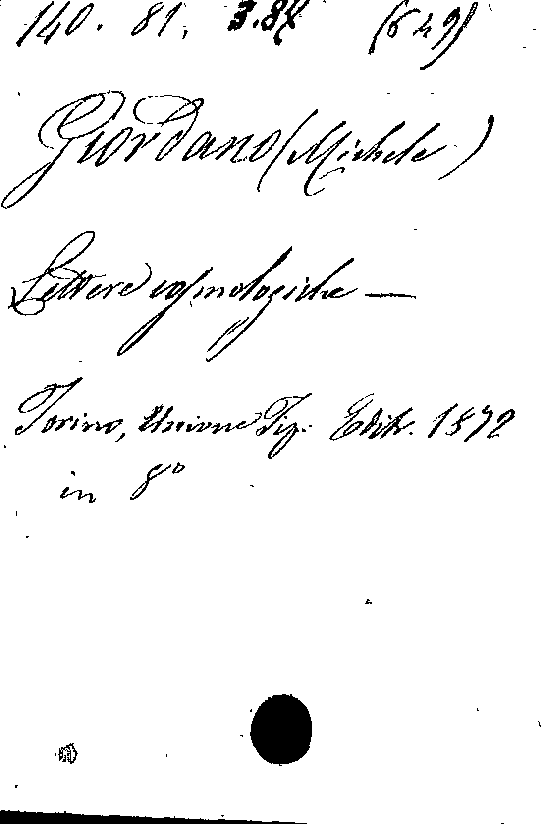 140. 81.
Giordano (Michele)
Lettere cosmologiche —
Torino, Unione Tip. Editr. 1872
in 8°